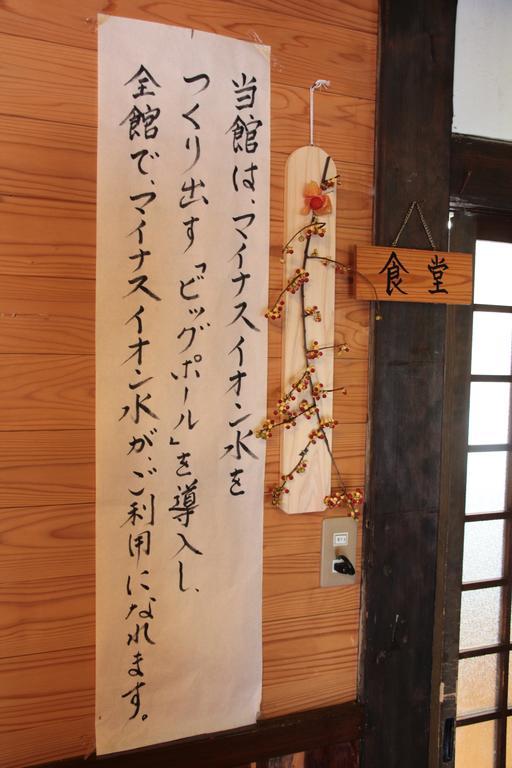 当館は、マイナスイオン水を
つくり出す「ビッグポール」を導入し、
全館で、マイナスイオン水が、ご利用になれます。
食堂